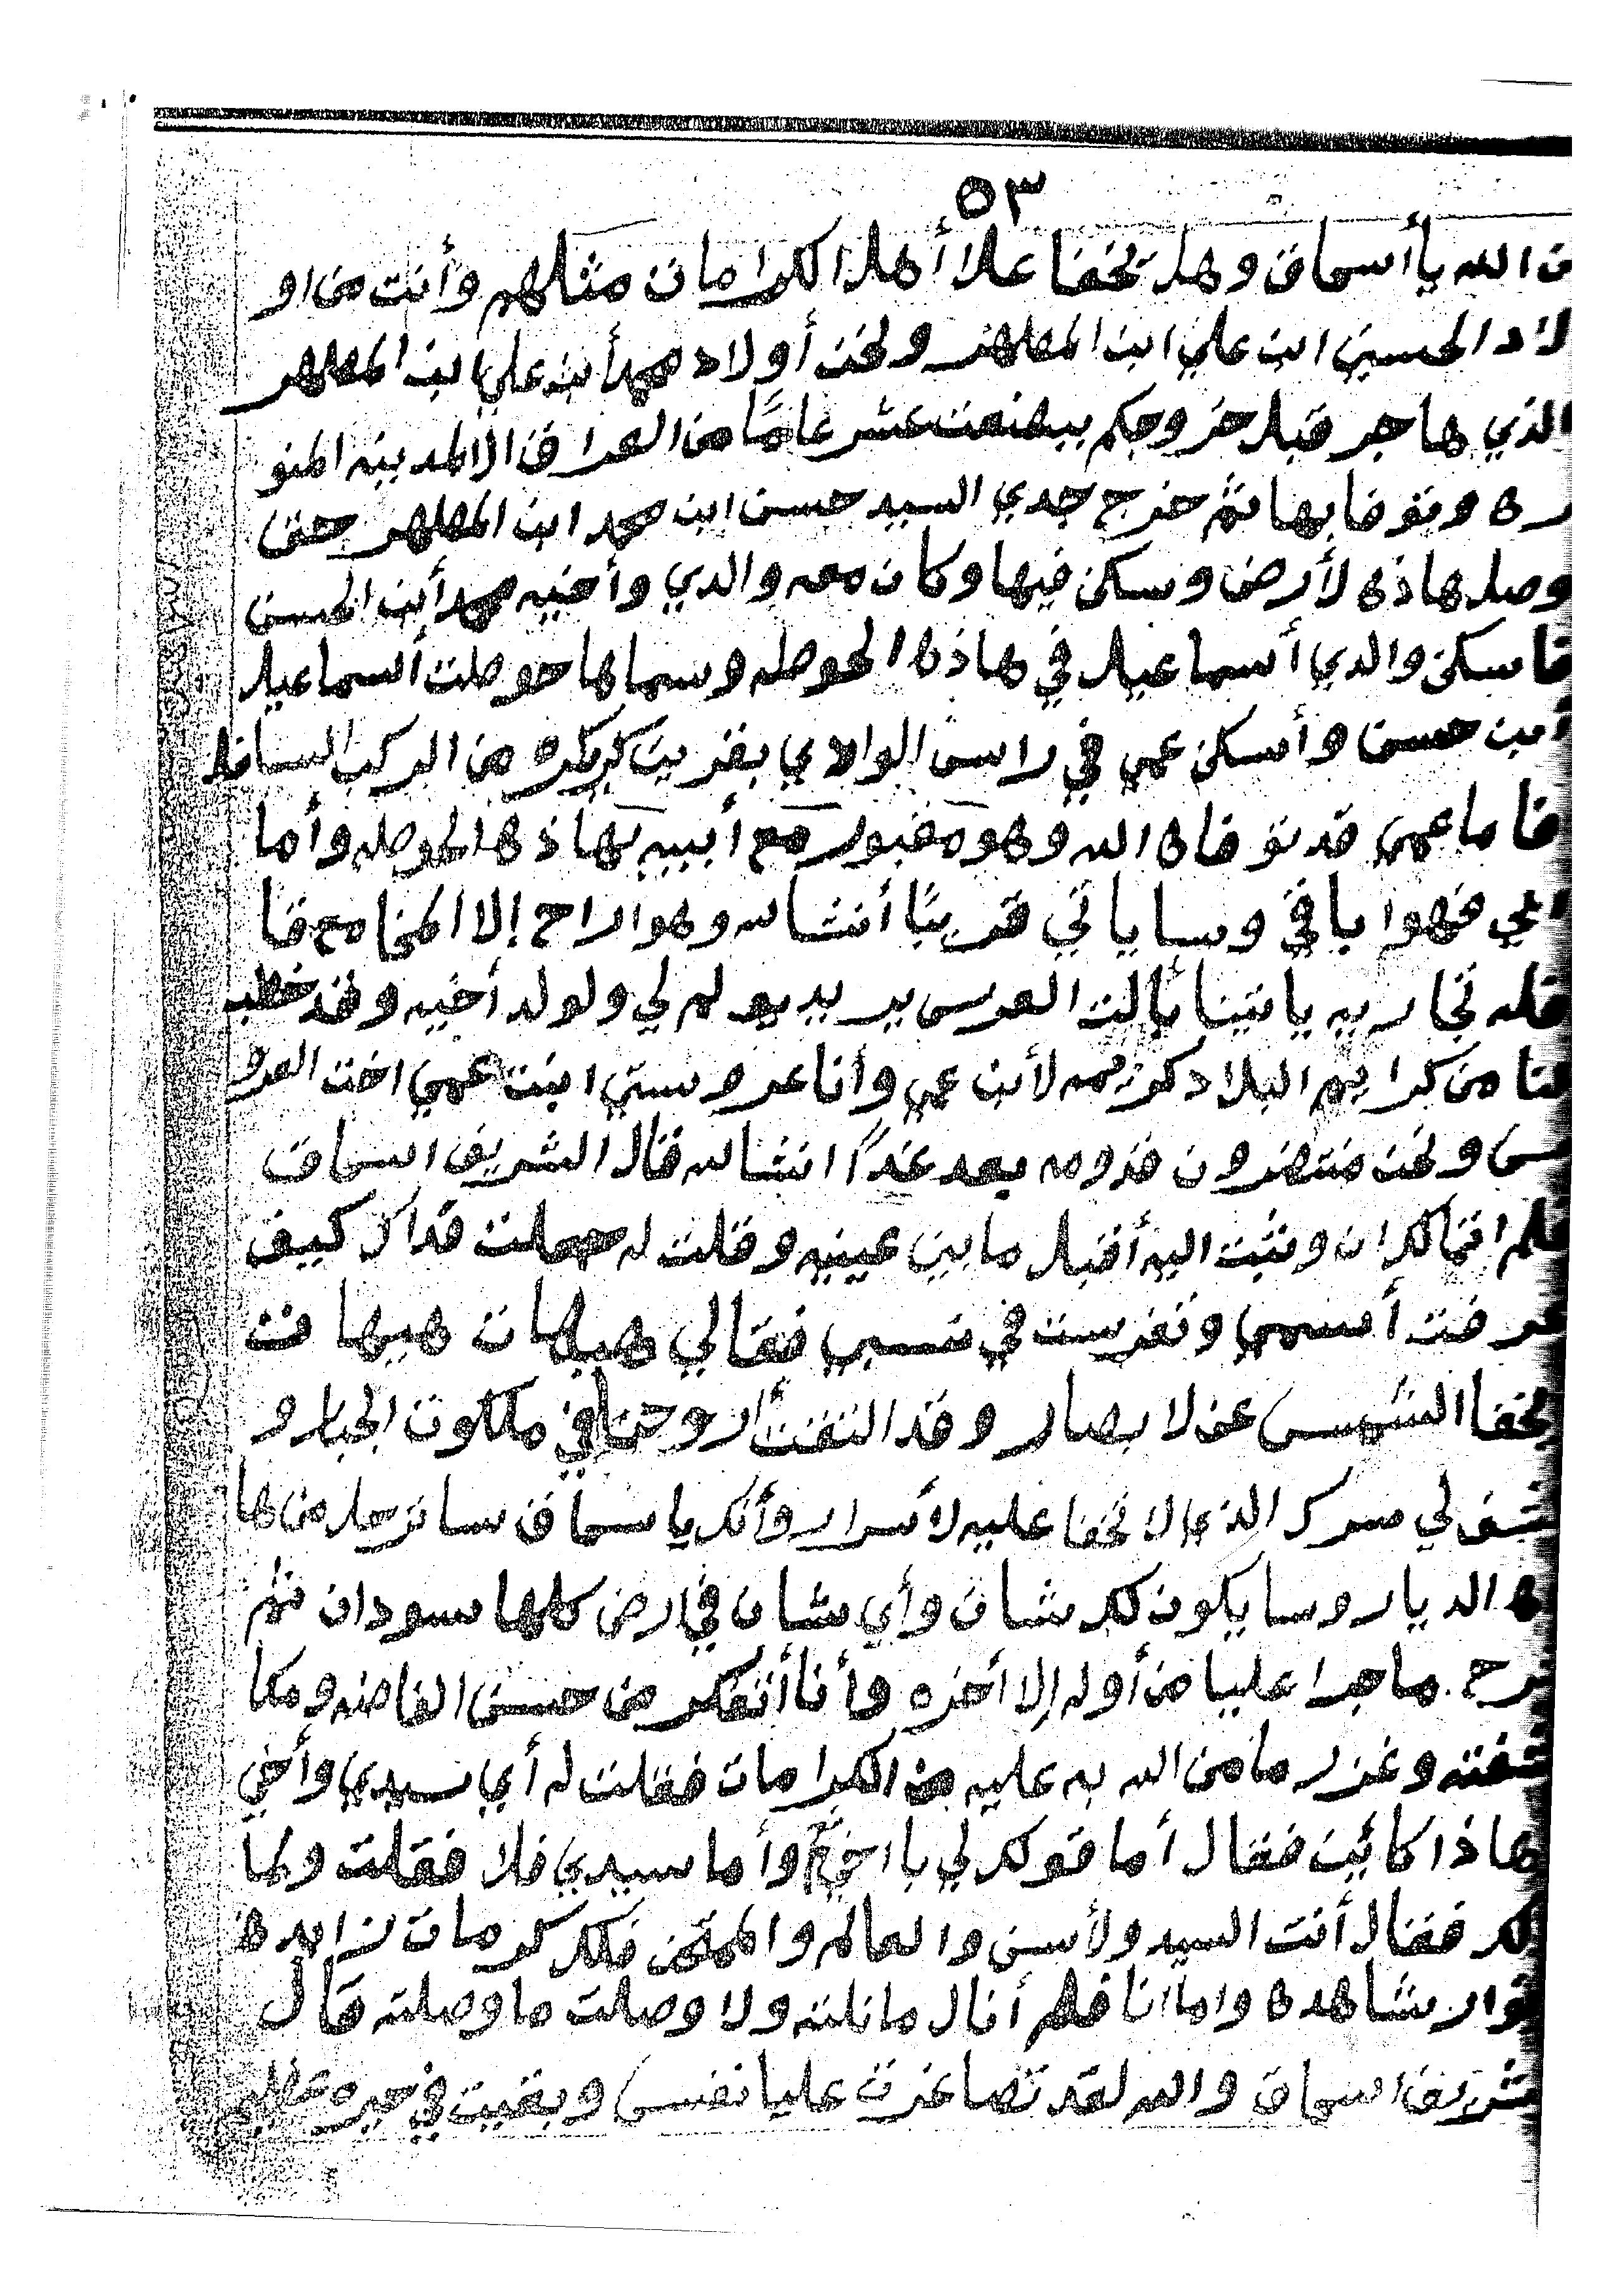 ٥٣
ن الله يا أسحاق وهل تخفا علا أهل الكرامات مثلهم وأنت من او
لاد الحسين ابن علي ابن المطهر ونحن أولاد محمد أبن علي ابن المطهر
الذي هاجر قبل خروجكم عشر عامًا من العراق الا المدينه المنو
ره وتوفا بها ثم خرج جدي السيد حسن ابن محمد ابن المطهر حتى
وصل هاذه لأرض وسكن فيها وكان معه والدي وأخيه محمد أبن الحسن
فاسكن والدي أسماعيل في هاذه الحوطه وسماها حوطت أسماعيل
أبن حسن وأسكن عمي في راس الوادي بقريت من الركب السافل
فاما عمي قد توفاه الله وهو مقبور مع أبيه بهاذه الحوطه وأما
فهوا باقي وساياتي قريبًا أنشالله وهوا راح إلا المخا مع قا
فله تجاريه ياتينا بألت العرس يريد يولم لي ولولد أخيه وقد خطب
لنا من كرايم البلاد كريمه لأبن عمي وأنا عروستي ابنت عمي اخت العرو
س ونحن منتضرون قدومه بعد غدًا انشالله قال الشريف اسحاق
فلم اتمالك ان وثبت اليه أقبل ما بين عينيه وقلت له جعلت فداك كيف
عرفت أسمي وتفرست في نسبي فقالي هيهات هيهات
تخفا الشمس عن لابصار وقد التقت أروحنا في ملكوت الجبار و
شف لي سرك الذي لا تخفا عليه لأسرار وأنك يا سحاق سا ترحل من ها
ه الديار وسا يكون لك شان وأي شان في ارض كلها سودان ثم
شرح ما جرا عليا من أوله إلا أخره وأنا أتفكر من حسن الفاضه ومكا
شفته وغزر ما من الله به عليه من الكرامات فقلت له أي سيدي وأخي
هاذا كائين فقال أما قولك لي يا اخي نعم وأما سيدي فلا فقلت ولما
لك فقال أنت السيد ولأسن والعالم والممتحن فلك كرمات زايده
نوار شاهده واما انا فلم أنال ما نلته ولا وصلت ما وصلته قال
شريف اسحاق والله لقد تصاغرت عليا نفسي وبقيت في حيره